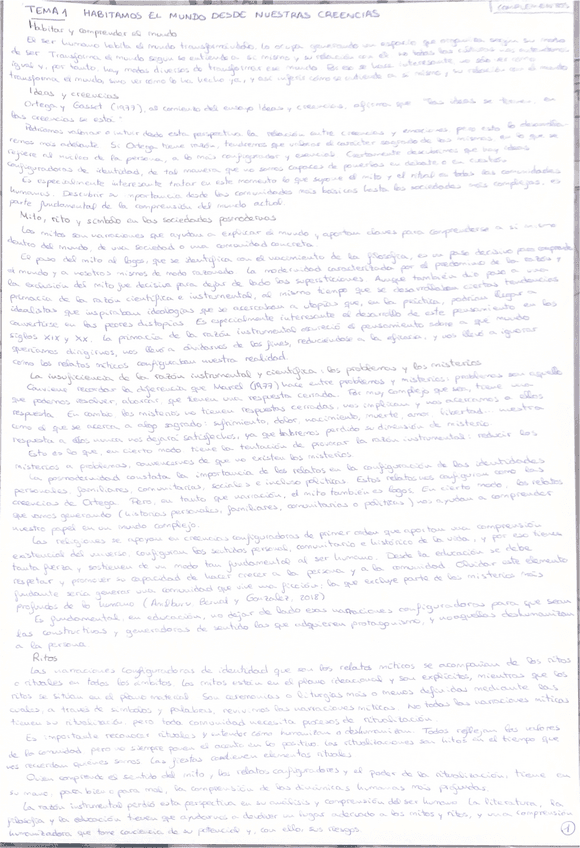 COMPLEMENTOS
TEMA 1 HABITAMOS EL MUNDO DESDE NUESTRAS CREENCIAS
Habitar y comprender el mundo
El ser humano habita el mundo transformándolo. Lo ocupa generando un espacio que organiza según su modo
de ser. Transforma el mundo según se entiende a sí mismo, y su relación con él. No todas las culturas nos entendemos
igual y, por tanto, hay modos diversos de transformar ese mundo. Lo es interesante no sólo es cómo
transforma el mundo, sino ver cómo lo ha hecho ya, y así inferir cómo se entiende a sí mismo, y su relación con el mundo
Ideas y creencias
Ortega y Gasset (1977), al comienzo del ensayo Ideas y creencias, afirma que "las ideas se tienen, en
las creencias se está."
Podríamos valorar e intuir desde esta perspectiva la relación entre creencias y emociones pero esto lo desarrolla-
remos más adelante. Si Ortega tiene razón, tendremos que valorar el carácter sagrado de las mismas en lo que se
refiere al núcleo de la persona, a lo más configurador y esencial. Ciertamente descubrimos que hay ideas
configuradoras de identidad, de tal manera que no somos capaces de ponerlas en debate o en cuestión.
Es especialmente interesante tratar en este momento lo que supone el mito y el ritual en todas las comunidades
humanas. Descubrir su importancia desde las comunidades más básicas hasta las sociedades más complejas, es
parte fundamental de la comprensión del mundo actual.
Mito, rito y símbolo en las sociedades posmodernas
Los mitos son narraciones que ayudan a explicar el mundo y aportan claves para comprenderse a sí mismo
dentro del mundo, de una sociedad o una comunidad concreta.
El paso del mito al logos, que se identifica con el nacimiento de la filosofía, es un paso decisivo para comprender
el mundo y a nosotros mismos de modo razonado. La modernidad caracterizada por el predominio de la razón y
la exclusión del mito fue decisiva para dejar de lado las supersticiones. Aunque también dio paso a una
primacía de la razón científica e instrumental, al mismo tiempo que se desarrollaban ciertas tendencias
idealistas que inspiraban ideologías que se acercaban a utopías que, en la práctica, podrían llegar a
convertirse en las peores distopías. Es especialmente interesante el desarrollo de este pensamiento en los
siglos XIX y XX. La primacía de la razón instrumental oscureció el pensamiento sobre a qué mundo
queríamos dirigirnos, nos llevó a olvidarnos de los fines, reduciéndose a la eficacia, y nos llevó a ignorar
cómo los relatos míticos configuraban nuestra realidad.
La insuficiencia de la razón instrumental y científica: los problemas y los misterios
Conviene recordar la diferencia que Marcel (1977) hace entre problemas y misterios: problemas son aquello
que podemos resolver, abarcar, que tienen una respuesta cerrada. Por muy compleja que sea, tiene una
respuesta. En cambio, los misterios no tienen respuestas cerradas, nos implican y nos acercamos a ellos
como el que se acerca a algo sagrado: sufrimiento, dolor, nacimiento, muerte, amor, libertad... nuestra
respuesta a ellos nunca nos dejará satisfechos, ya que habremos perdido su dimensión de misterio.
Esto es lo que, en cierto modo, tiene la tentación de provocar la razón instrumental: reducir los
misterios a problemas, convencernos de que no existen los misterios.
La posmodernidad constata la importancia de los relatos en la configuración de las identidades
personales, familiares, comunitarias, sociales e incluso políticas. Estos relatos nos configuran como las
creencias de Ortega. Pero, en tanto que narración, el mito también es logos. En cierto modo, los relatos
que vamos generando (historias personales, familiares, comunitarias o políticas) nos ayudan a comprender
nuestro papel en un mundo complejo.
Las religiones se apoyan en creencias configuradoras de primer orden que aportan una comprensión
existencial del universo, configuran los sentidos personal, comunitario e histórico de la vida, y por eso tienen
tanta fuerza, y sostienen de un modo tan fundamental al ser humano. Desde la educación se debe
respetar y promover su capacidad de hacer crecer a la persona y a la comunidad. Olvidar este elemento
fundante sería generar una comunidad que vive una ficción, la que excluye parte de los misterios más
profundos de lo humano (Amilburu, Bernal y González, 2018)
Es fundamental, en educación, no dejar de lado esas narraciones configuradoras para que sean
las constructivas y generadoras de sentido las que adquieren protagonismo, y no aquellas deshumanizan
a la persona.
Ritos
Las narraciones configuradoras de identidad que son los relatos míticos se acompañan de los ritos
o rituales en todos los ámbitos. Los mitos están en el plano idencional y son explícitos, mientras que los
ritos se sitúan en el plano material. Son ceremonias o liturgias más o menos definidas mediante las
cuales, a través de símbolos y palabras, revivimos las narraciones míticas. No todas las narraciones míticas
tienen su ritualización pero toda comunidad necesita procesos de ritualización.
Es importante reconocer rituales y entender cómo humanizan o deshumanizan. Todos reflejan los valores
de la comunidad pero no siempre ponen el acento en lo positivo. Las ritualizaciones son hitos en el tiempo que
nos recuerdan quiénes somos. Las fiestas contienen elementos rituales.
Quien comprende el sentido del mito, los relatos configuradores y el poder de la ritualización, tiene en
su mano, para bien o para mal, la comprensión de las dinámicas humanas más profundas.
La razón instrumental perdió esta perspectiva en su análisis y comprensión del ser humano. La literatura, la
filosofía y la educación tienen que ayudarnos a devolver un lugar adecuado a los mitos y ritos, y una comprensión
humanizadora que tome conciencia de su potencial y, con ello, sus riesgos.
1